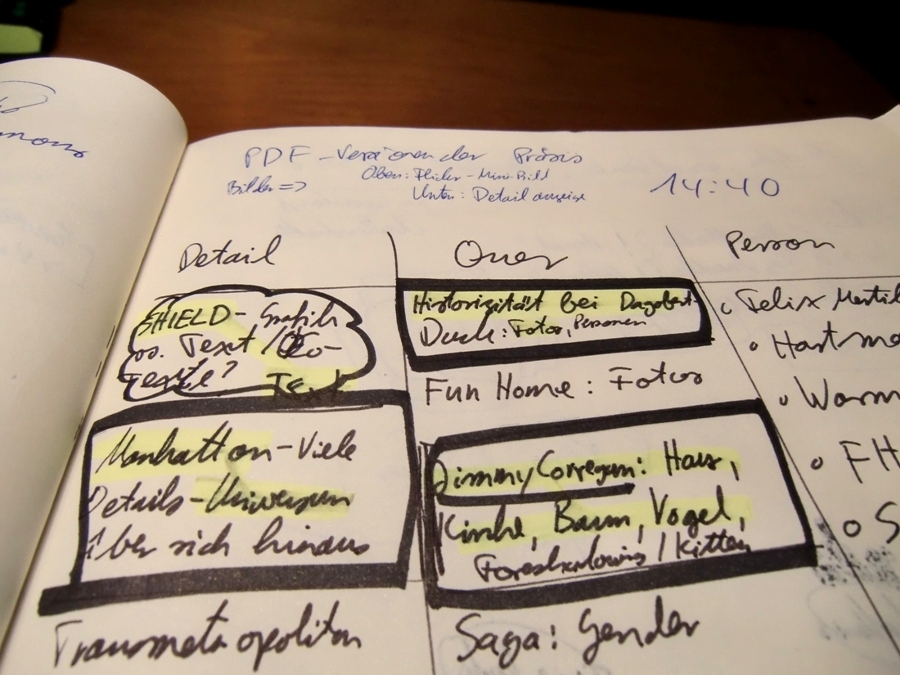 PDF-Versionen der Präsis
Bilder => Oben: Flickr-Mini-Bild
Unten: Detailanzeige
14:40
Detail
SHIELD- Grafik
vs. Text / Co-
Texte? Text
Manhattan-Viele
Details-Universum
über sich hinaus
Transmetropolitan
Quer
Historizität bei Dagobert
Duck: Fotos, Personen
Fun Home: Fotos
Jimmy Corregan: Haus,
Kirche, Baum, Vogel,
Foreshadowing / Kitten
Saga: Gender
Person
Felix
Hartma
Warm
FH
S